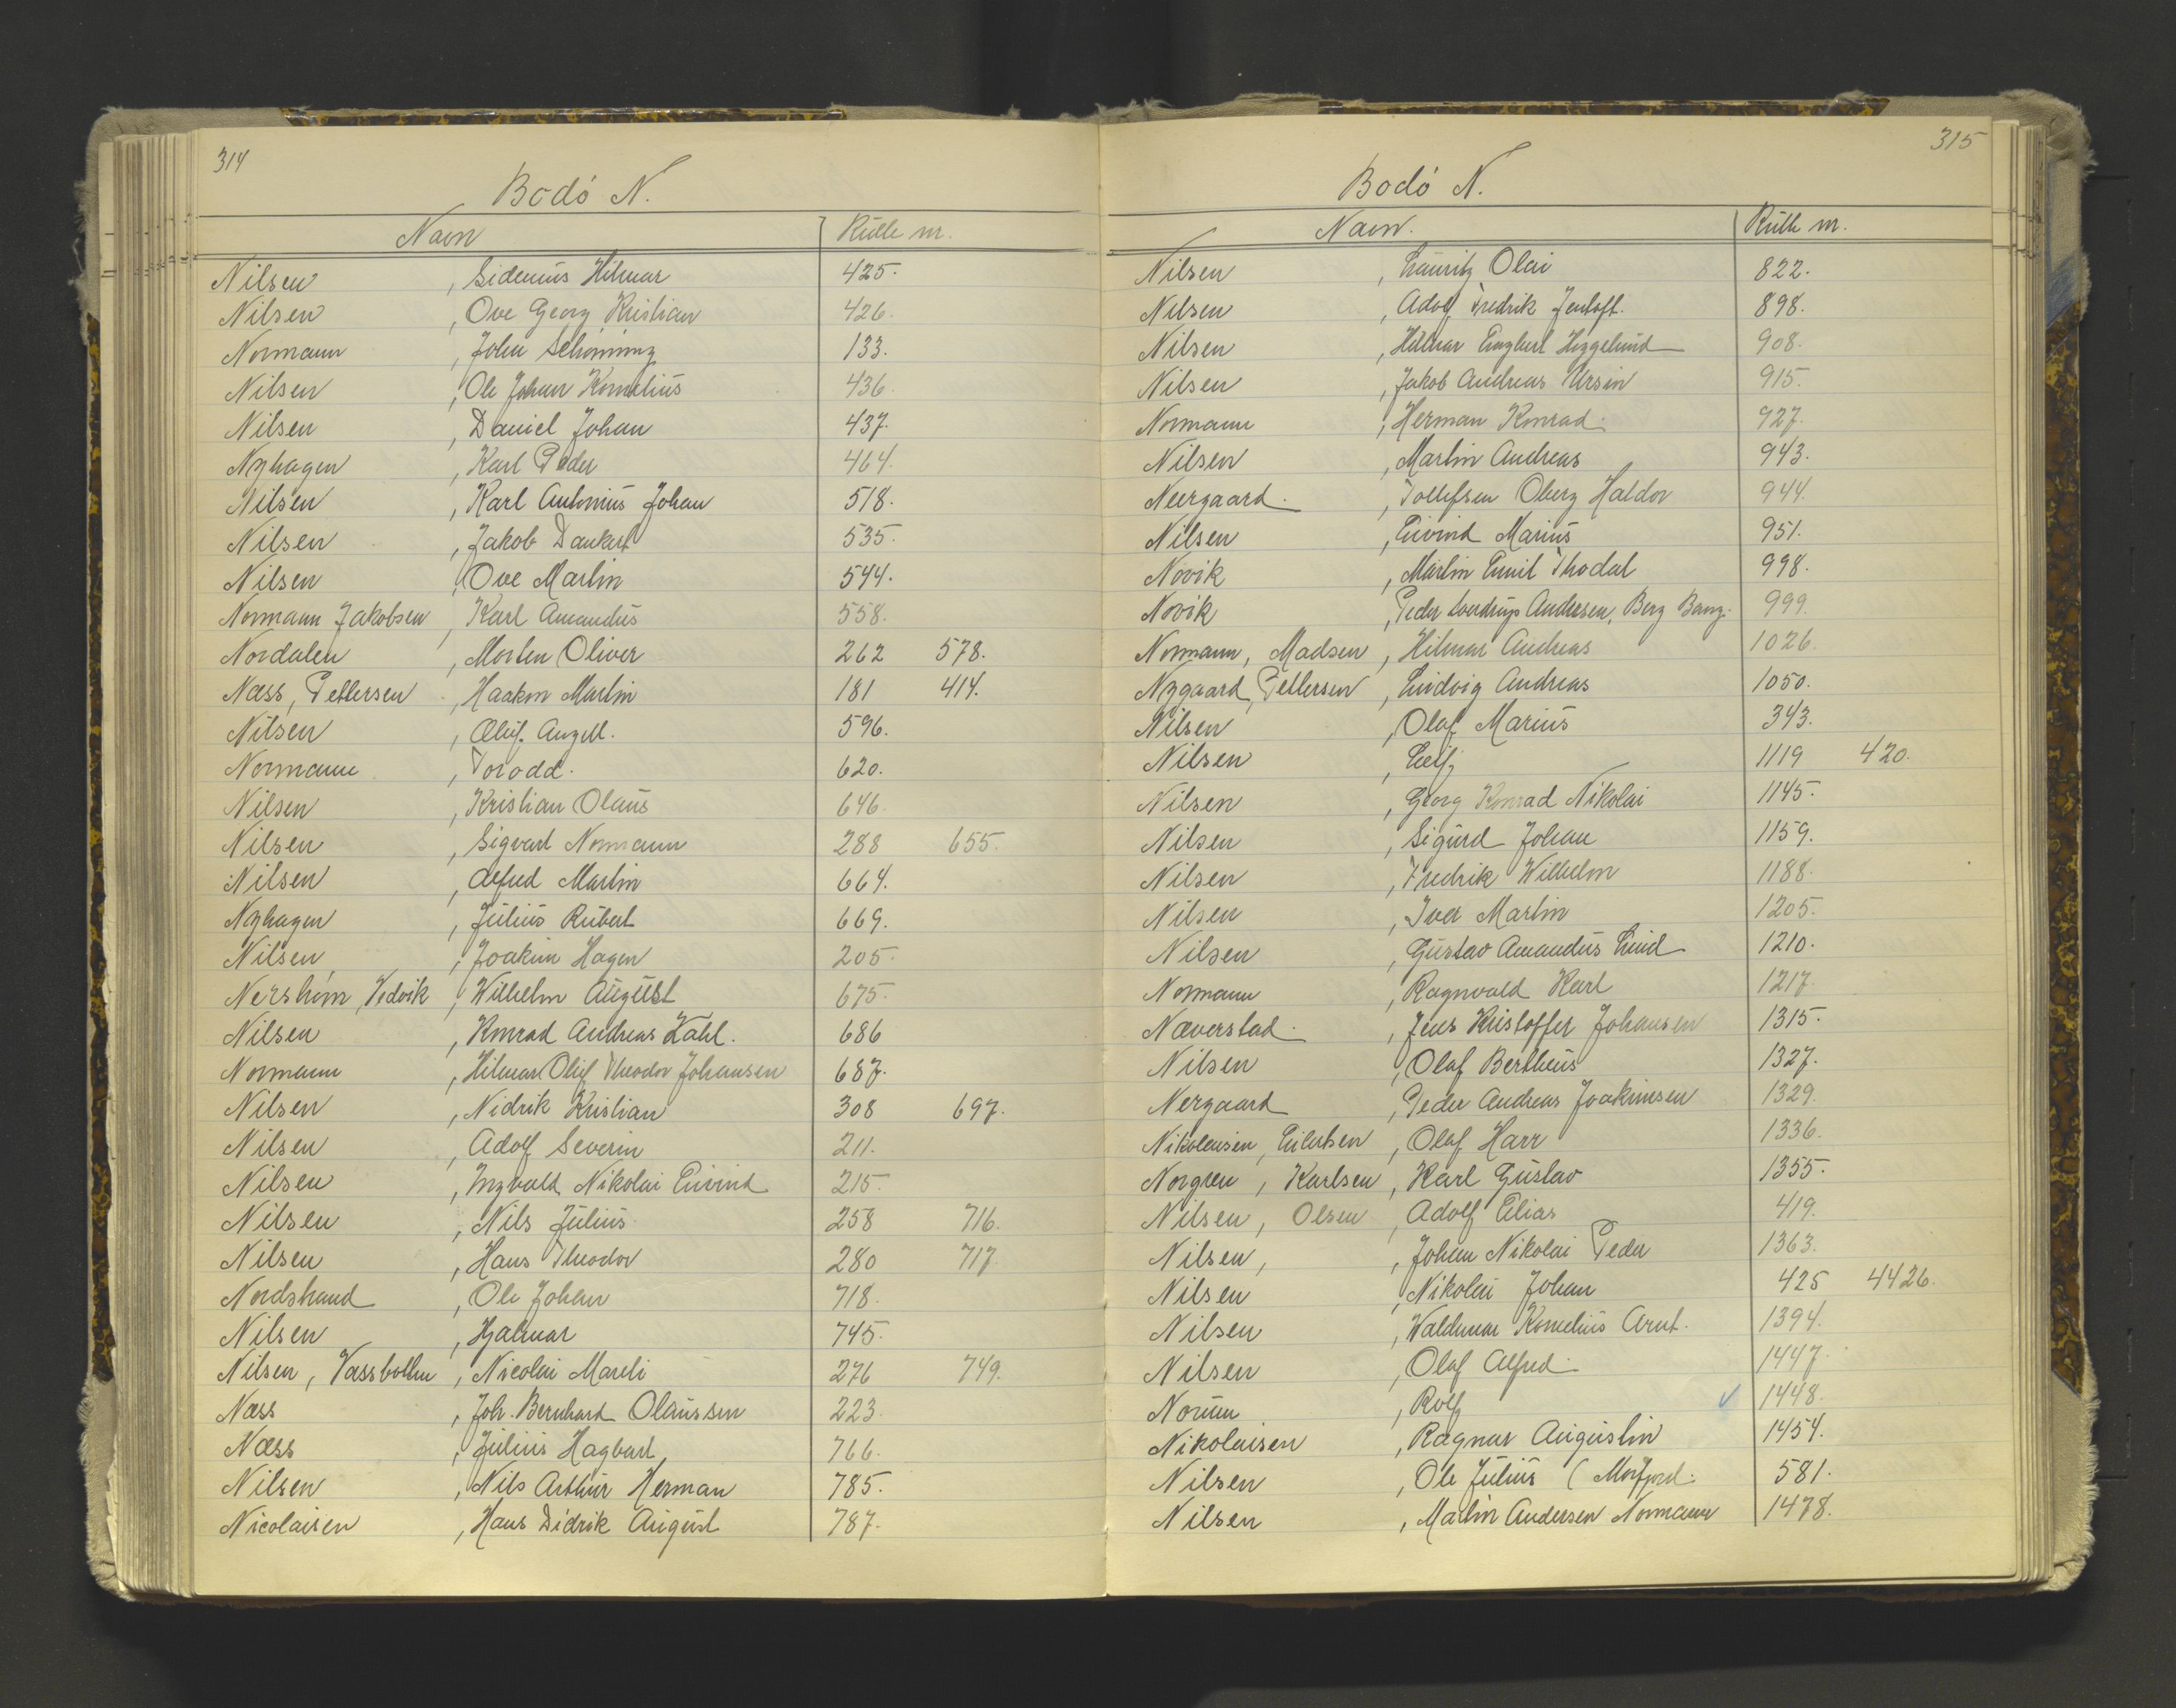 314
Bodö N.
Navn Rulle nr.
Nilsen , Sidenius Hilmar 425.
Nilsen , Ove Georg Kristian 426.
Normann , John Schønning 133.
Nilsen , Ole Johan Kornelius 436.
Nilsen , Daniel Johan 437.
Nyhagen , Karl Peder 464.
Nilsen , Karl Antonius Johan 518.
Nilsen , Jakob Dankert 535.
Nilsen , Ove Martin 544.
Normann Jakobsen , Karl Amandus 558.
Nordalen , Morten Oliver 262 578.
Næss, Pettersen , Haakon Martin 181 414.
Nilsen , Oluf Angell. 596.
Normann , Torodd. 620.
Nilsen , Kristian Olaus 646.
Nilsen , Sigvart Normann 288 655.
Nilsen , Alfred Martin 664.
Nyhagen , Julius Robert 669.
Nilsen , Joakim Hagen 205.
Nersheim, Vedvik , Wilhelm August 675.
Nilsen , Konrad Andreas Kahl. 686
Normann , Hilmar Oluf Theodor Johansen 687.
Nilsen , Nidrik Kristian 308 697.
Nilsen , Adolf Severin 211.
Nilsen , Ingvald Nikolai Eivind 215.
Nilsen , Nils Julius 258 716.
Nilsen , Hans Theodor 280 717.
Nordstrand , Ole Johan 718.
Nilsen , Hjalmar 745.
Nilsen, Vassbotten , Nicolai Mareli 276 749.
Næss , Joh. Bernhard Olaussen 223.
Næss , Julius Hagbart 766.
Nilsen , Nils Arthur Herman 785.
Nicolaisen , Hans Didrik August 787.
315
Bodö N.
Navn. Rulle nr.
Nilsen , Lauritz Olai 822.
Nilsen , Adolf Fredrik Jentoft. 898.
Nilsen , Hilmar Engbert Heggelund 908.
Nilsen , Jakob Andreas Ursin 915.
Normann , Herman Konrad. 927.
Nilsen , Martin Andreas 943.
Neergaard. , Tollefsen Oberg Haldor 944.
Nilsen , Eivind Marius 951.
Novik , Martin Emil Thodal 998.
Novik , Peder Andresen, Berg Bang. 999.
Normann, Madsen , Hilmar Andreas 1026.
Nygaard, Pettersen , Ludvig Andreas 1050.
Nilsen , Olaf Marius 343.
Nilsen , Leif 1119 420.
Nilsen , Georg Konrad Nikolai 1145.
Nilsen , Sigurd Johan 1159.
Nilsen , Fredrik Wilhelm 1188.
Nilsen , Iver Martin 1205.
Nilsen , Gustav Amandus Lund 1210.
Normann , Ragnvald Karl 1217.
Næverstad. , Jens Kristoffer Johansen 1315.
Nilsen , Olaf Bertheus 1327.
Nergaard , Peder Andreas Joakimsen 1329.
Nikolaisen, Eilertsen , Olaf Harr 1336.
Norgren, Karlsen , Karl Gustav 1355.
Nilsen, Olsen , Adolf Elias 419.
Nilsen, , Johan Nikolai Peder 1363.
Nilsen , Nikolai Johan 425 4426.
Nilsen , Waldemar Kornelius Arnt. 1394.
Nilsen , Olaf Alfred. 1447.
Norum , Rolf ✓ 1448.
Nikolaisen , Ragnar Augustin 1454.
Nilsen , Ole Julius (Morfjord. 581.
Nilsen , Martin Andersen Normann 1478.